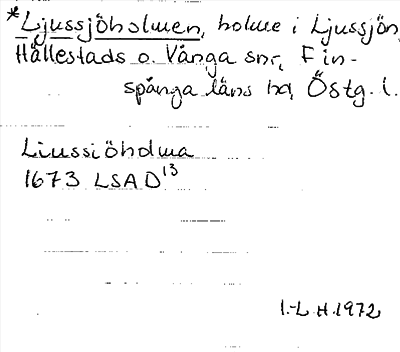 *Ljussjöholmen, holme i Ljussjön,
Hällestads o. Vånga snr, Fin-
spånga läns hd, Östg. l.
Liussiöholma
1673 LSAD 13
I.-L.H. 1972